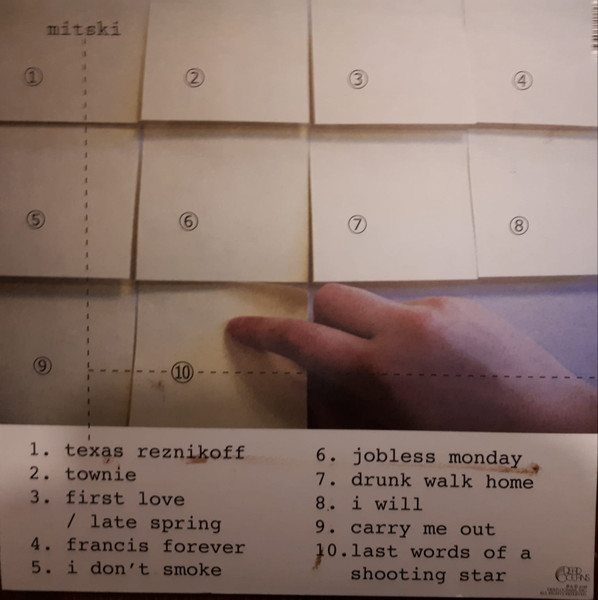 mitski
①
②
③
④
⑤
⑥
⑦
⑧
⑨
⑩
1. texas reznikoff
2. townie
3. first love
/ late spring
4. francis forever
5. i don't smoke
6. jobless monday
7. drunk walk home
8. i will
9. carry me out
10.last words of a
shooting star
DEAD
OCEANS